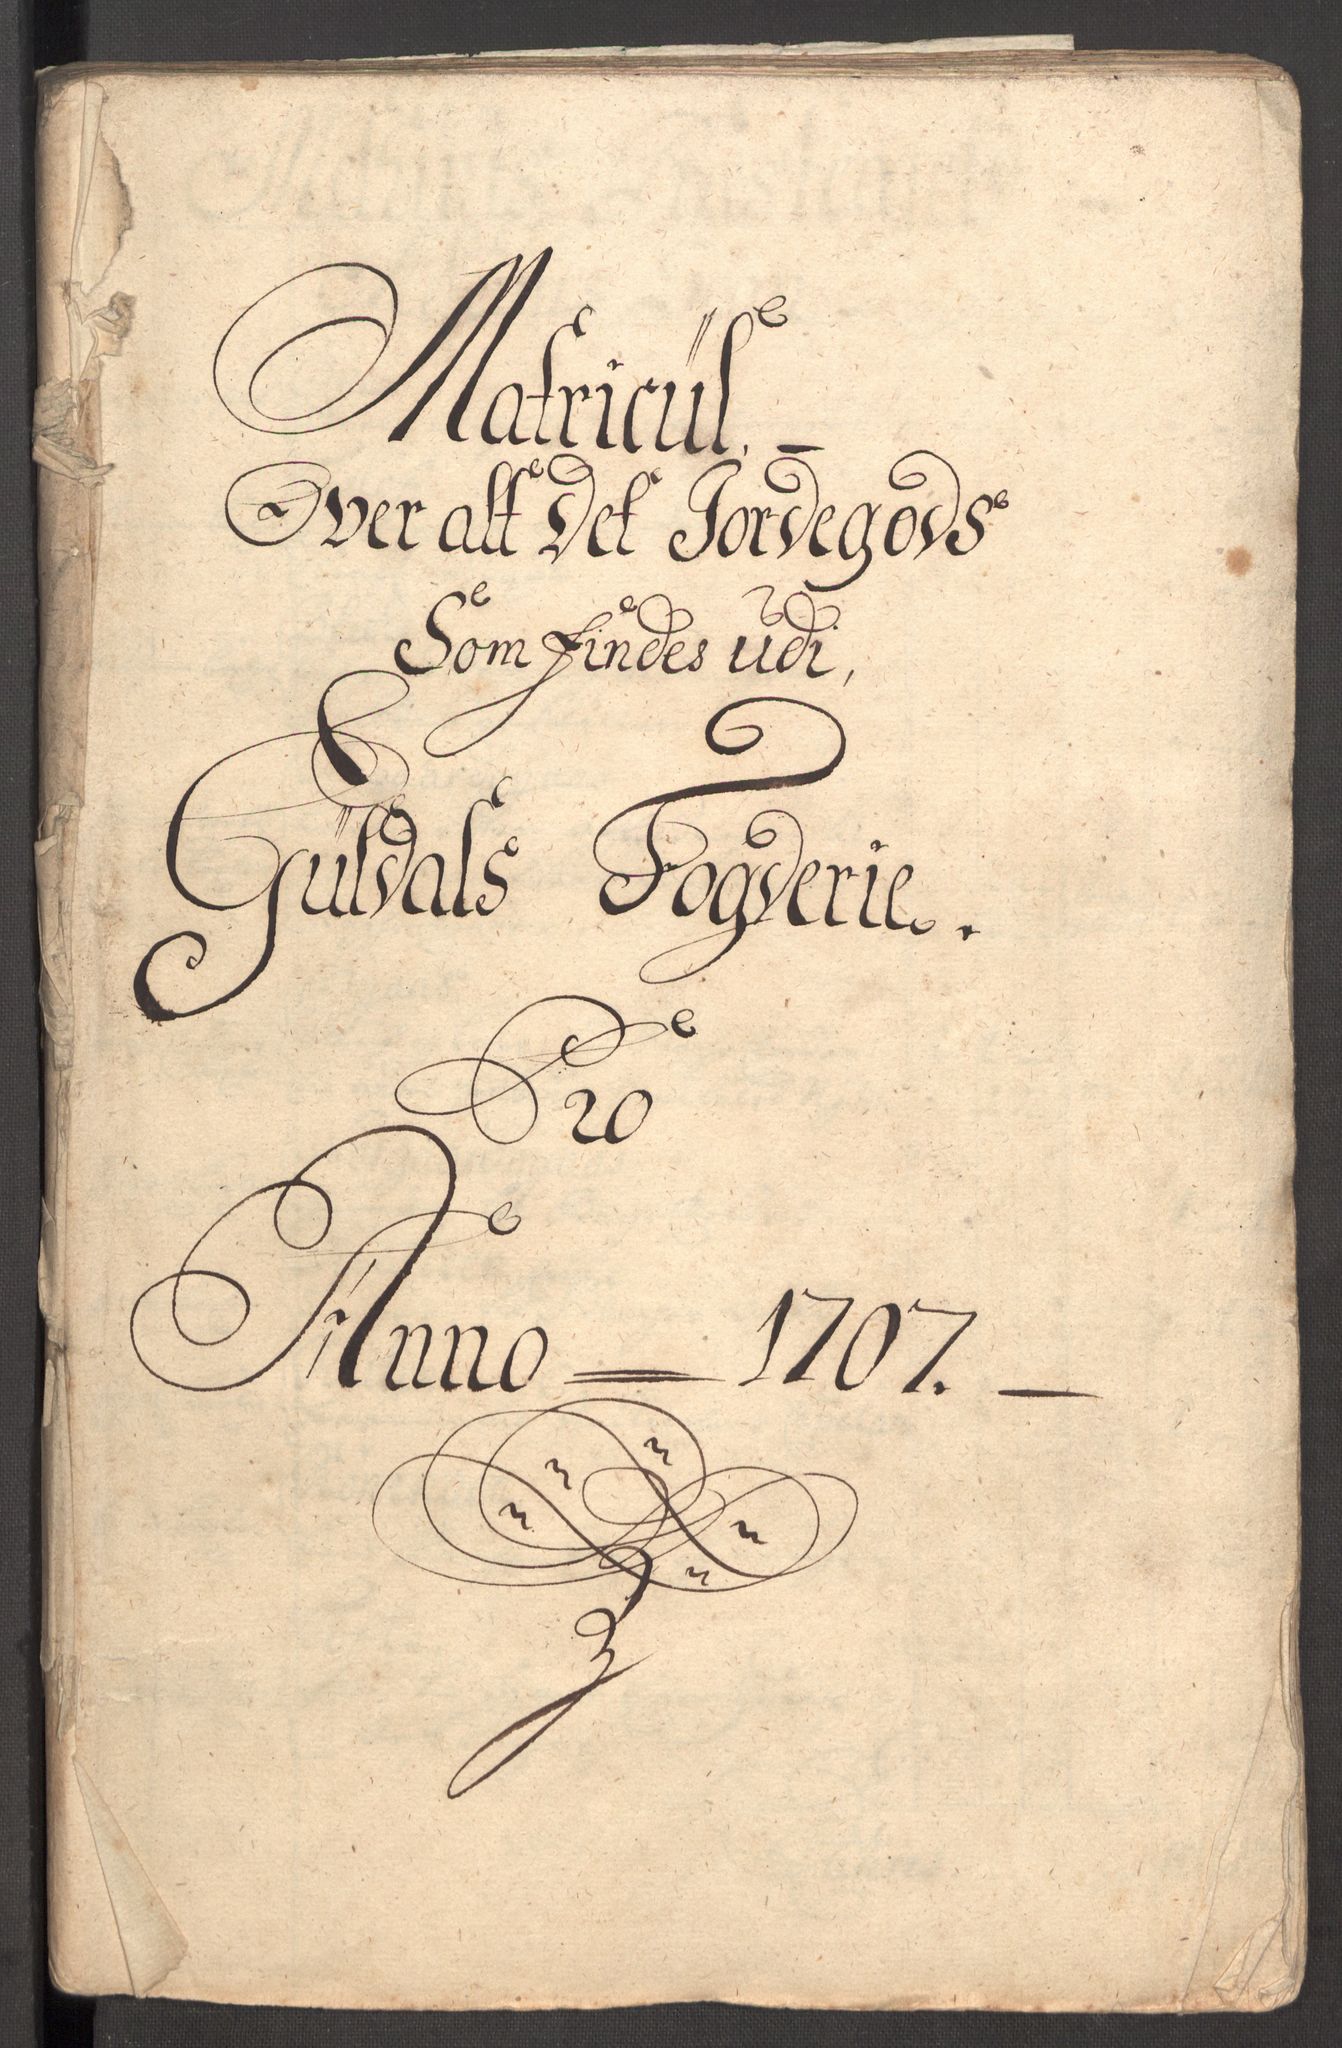 Matricul. —
Over alt det Jordegods
Som findes udi,
Guldals Fogderie.
Pro
Anno = 1707. —